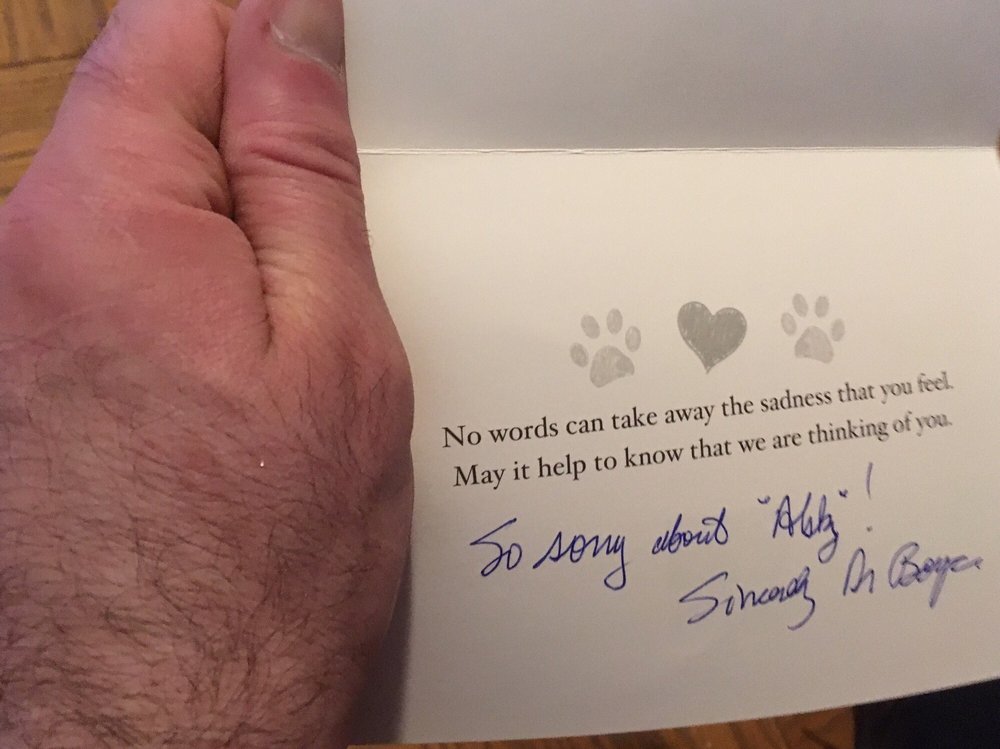 No words can take away the sadness that you feel.
May it help to know that we are thinking of you.
So sorry about "Abby"!
Sincerely Dr Boyce